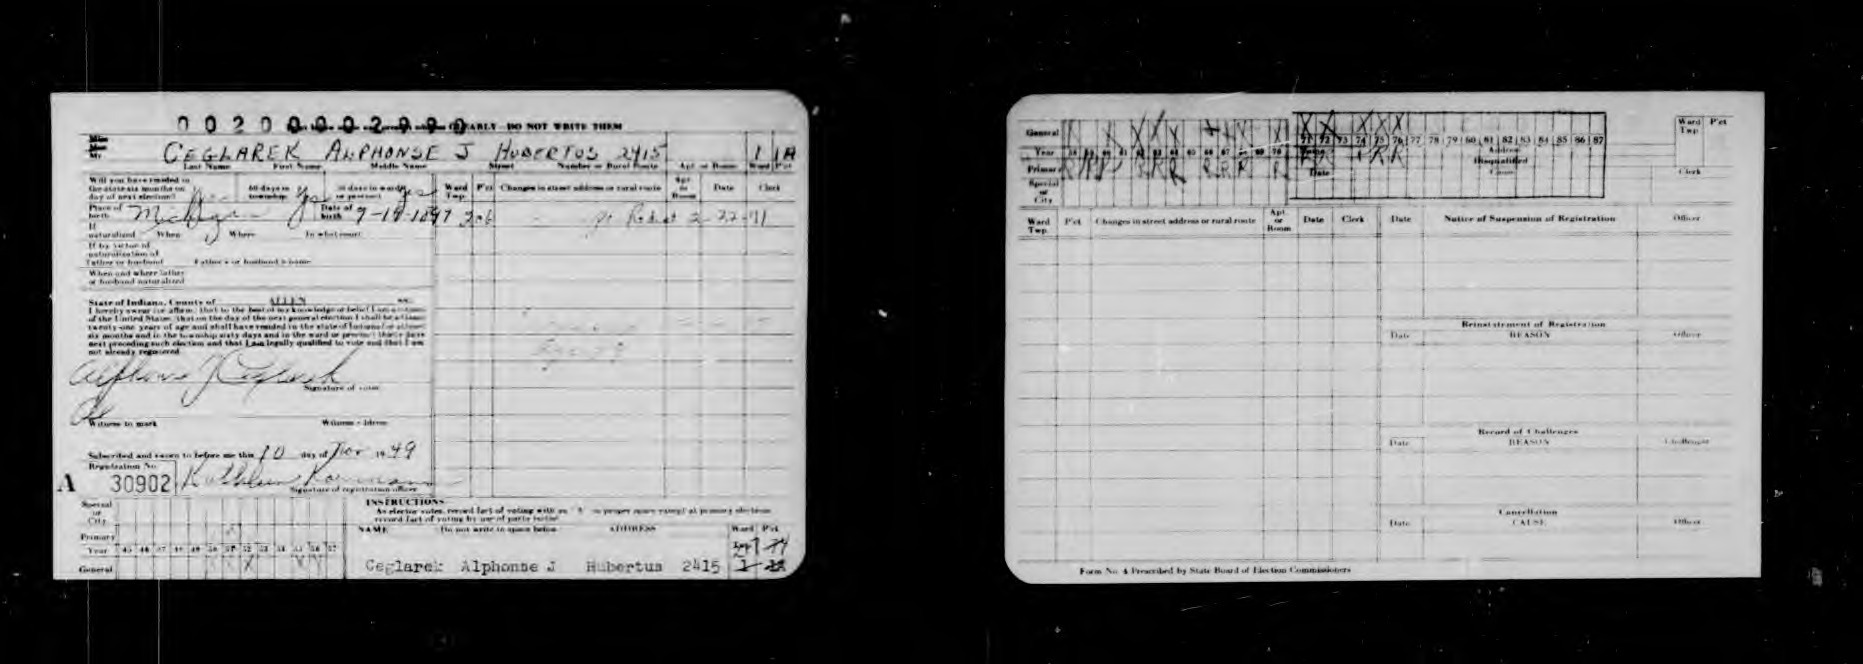 00200002990
ARLY - DO NOT WRITE THEM
Miss
Mrs
Mr CEGLAREK ALPHONSE J HUBERTUS 2415 1 1A
Last Name First Name Middle Name Street Number or Rural Route Apt. or Room Ward Pct
Will you have resided in
the state six months on
day of next election? Yes 60 days in township Yes 30 days in ward or precinct Yes
Ward Twp. Pct Changes in street address or rural route Apt. or Room Date Clerk
Place of birth Michigan Date of birth 1897 306 2-22-71
If naturalized When Where In what court
If by virtue of
naturalization of
Father or husband Father's or husband's name
When and where father
or husband naturalized
State of Indiana, County of ALLEN SS:
I hereby swear (or affirm) that to the best of my knowledge or belief I am a citizen
of the United States, that on the day of the next general election I shall be at least
twenty-one years of age and shall have resided in the state of Indiana for at least
six months and in the township sixty days and in the ward or precinct thirty days
next preceding such election and that I am legally qualified to vote and that I am
not already registered.
Alphonse J Ceglarek
Signature of voter
Witness to mark Witness address
Subscribed and sworn to before me this 10 day of Nov 1949
Registration No.
A 30902 Kathleen
Signature of registration officer
Special or City
Primary
Year 45 46 47 48 49 50 51 52 53 54 55 56 57
General
INSTRUCTIONS
As elector votes, record fact of voting with an "X" in proper space except at primary elections
record fact of voting by use of party initial
NAME Do not write in space below ADDRESS Ward Pct
Ceglarek Alphonse J Hubertus 2415
General
Year 58 59 60 61 62 63 64 65 66 67 68 69 70 71 72 73 74 75 76 77 78 79 80 81 82 83 84 85 86 87
Primary
Special or City
Name Address
Date Disqualified Cause
Ward Twp Pct
Clerk
Ward Twp. Pct Changes in street address or rural route Apt. or Room Date Clerk Date Notice of Suspension of Registration Officer
Reinstatement of Registration
Date REASON Officer
Record of Challenges
Date REASON Challenger
Cancellation
Date CAUSE Officer
Form No. 4 Prescribed by State Board of Election Commissioners